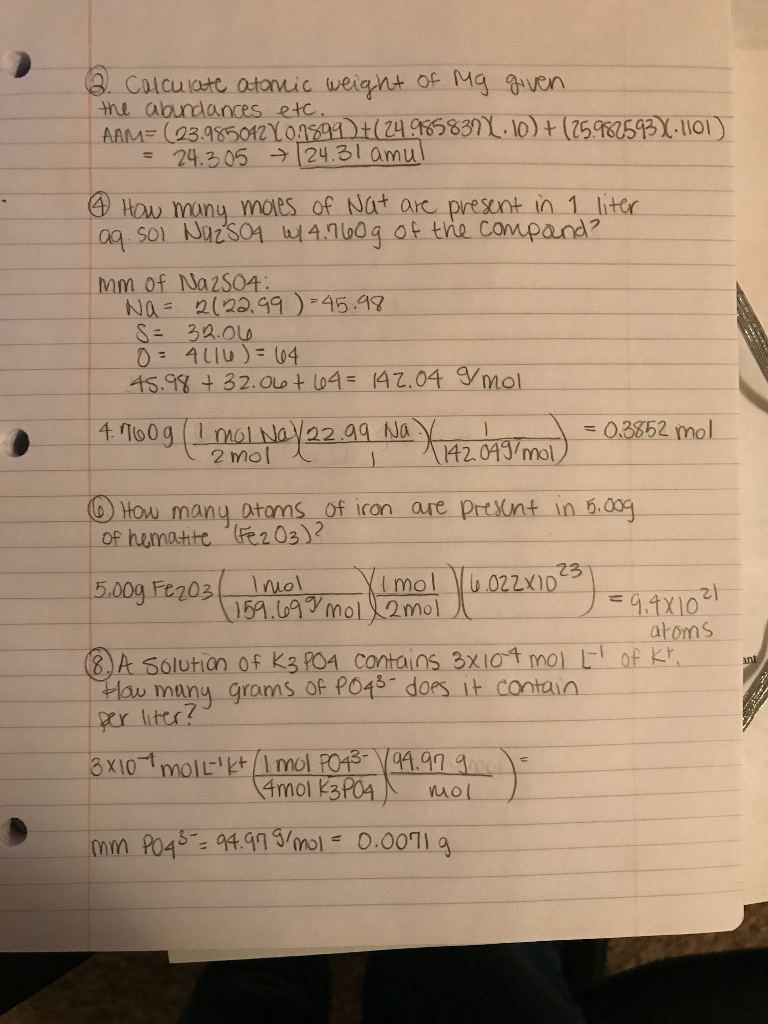 ②. Calculate atomic weight of Mg given
the abundances etc.
AAM= (23.985042)(0.7899)+(24.985837)(.10)+(25.982593)(.1101)
= 24.305 → 24.31 amu
④ How many moles of Na+ are present in 1 liter
aq. sol Na2SO4 w/ 4.760g of the compound?
mm of Na2SO4:
Na= 2(22.99)=45.98
S= 32.06
O= 4(16)=64
45.98 + 32.06 + 64= 142.04 g/mol
4.760g (1 mol Na/2 mol)(22.99 Na/1)(1/142.04g/mol) = 0.3852 mol
⑥ How many atoms of iron are present in 5.00g
of hematite (Fe2O3)?
5.00g Fe2O3 (1mol/159.69g/mol)(1mol/2mol)(6.022x10^23) = 9.4x10^21
atoms
⑧.) A solution of K3PO4 contains 3x10^-4 mol L^-1 of K+.
ant
How many grams of PO4^3- does it contain
per liter?
3x10^-4 mol L^-1 K+ (1mol PO4^3-/4mol K3PO4)(94.97 g/mol) =
mm PO4^3- = 94.97 g/mol = 0.0071 g